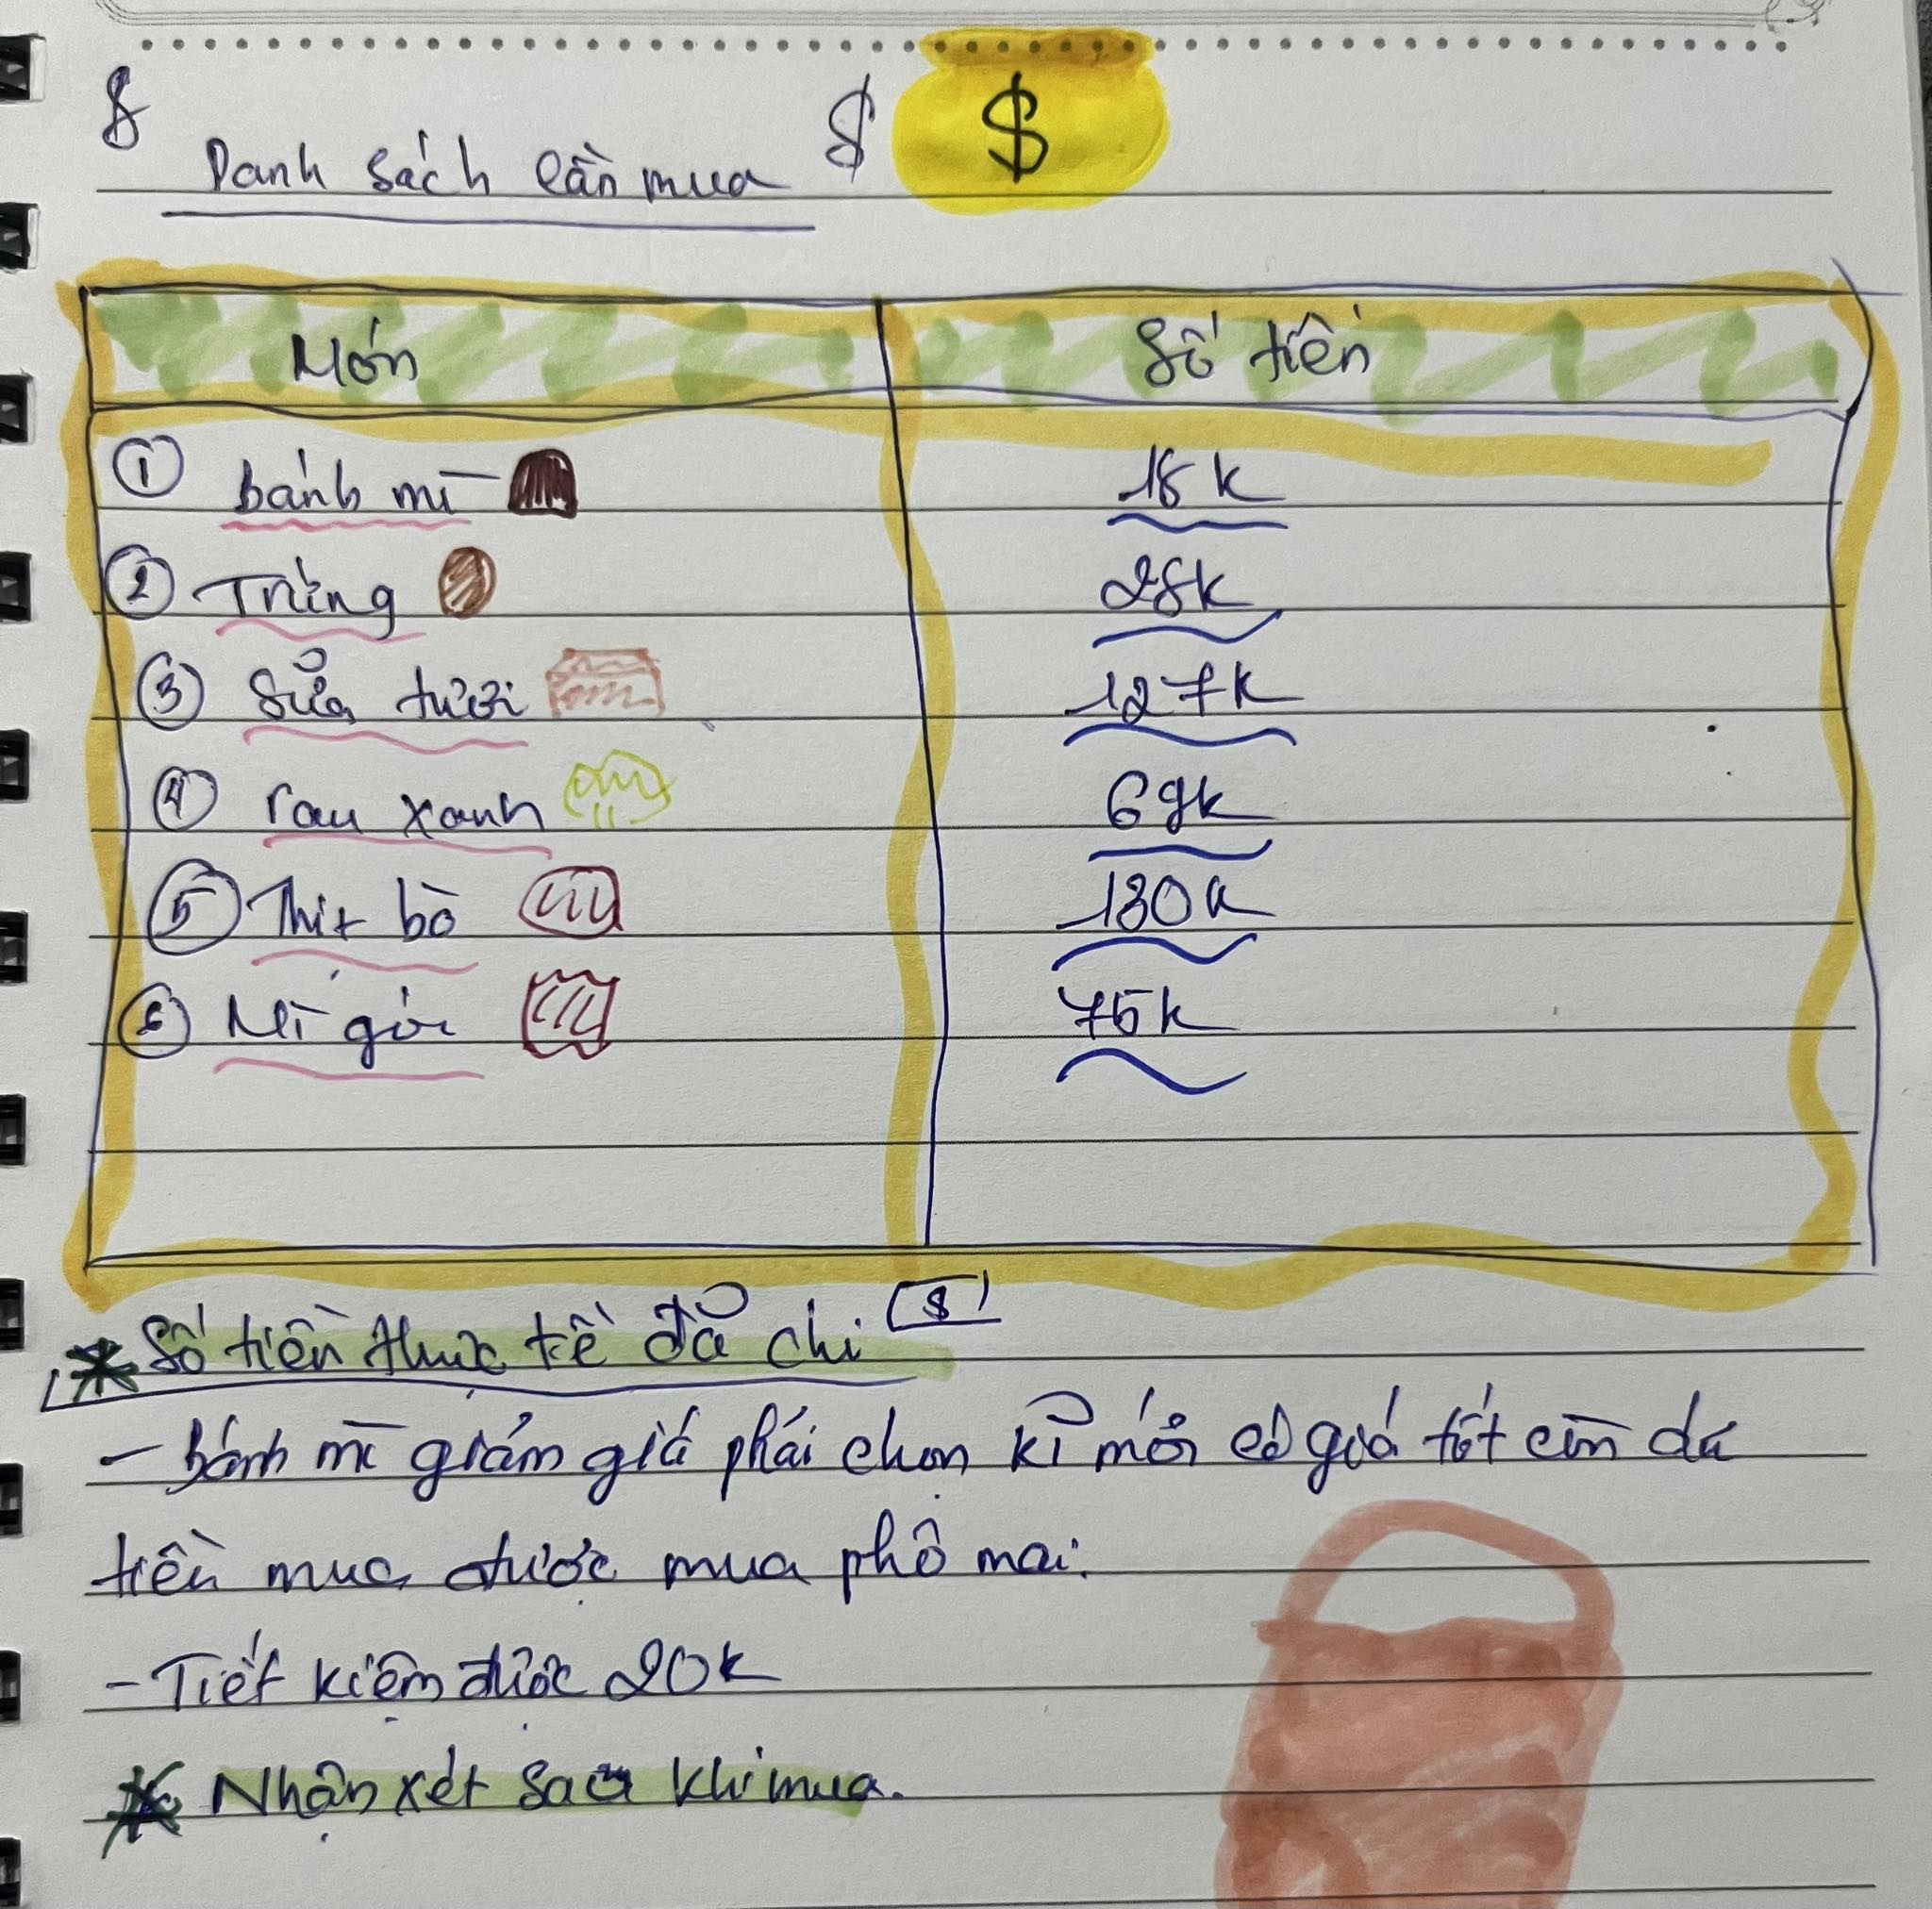 $
Danh sách cần mua $ $
Món Số tiền
① bánh mì 18k
② Trứng 28k
③ Sữa tươi 127k
④ rau xanh 69k
⑤ Thịt bò 130k
⑥ Mì gói 75k
* Số tiền thực tế đã chi $
- bánh mì giảm giá phải chọn kĩ mới có giá tốt còn dư
tiền mua được mua phô mai.
- Tiết kiệm được 20k
* Nhận xét sau khi mua.